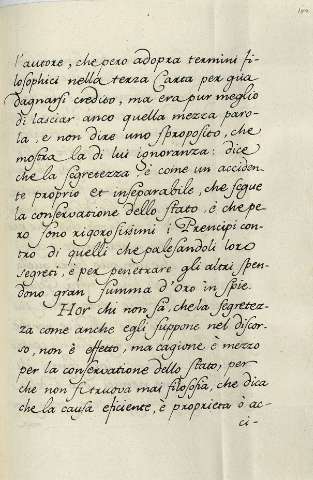 l'autore, che però adopra termini fi-
losophici nella terza Carta per gua
dagnarsi credito, ma era pur meglio
di lasciar anco quella mezza paro-
la, e non dire uno sproposito, che
mostra la di lui ignoranza: dice
che la segretezza è come un acciden-
te proprio et inseparabile, che segue
la conservatione dello stato, è che pe-
ro sono rigorosissimi i Prencipi con-
tro di quelli che palesandoli loro
segreti, è per penetrare gli altri spen-
dono gran summa d'oro in spie.
Hor chi non sà, che la segretez-
za come anche egli suppone nel discor-
so, non è effetto, ma cagione è mezzo
per la conservatione dello stato, per
che non si truova mai filosofia, che dica
che la causa eficiente, è proprieta ò ac-
ci-